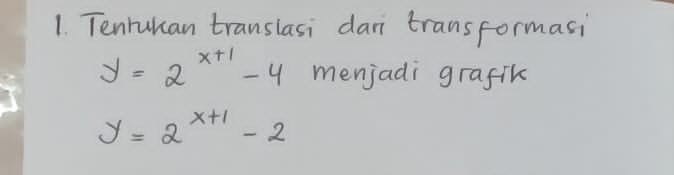 1. Tentukan translasi dari transformasi
y = 2^(x+1) - 4 menjadi grafik
y = 2^(x+1) - 2